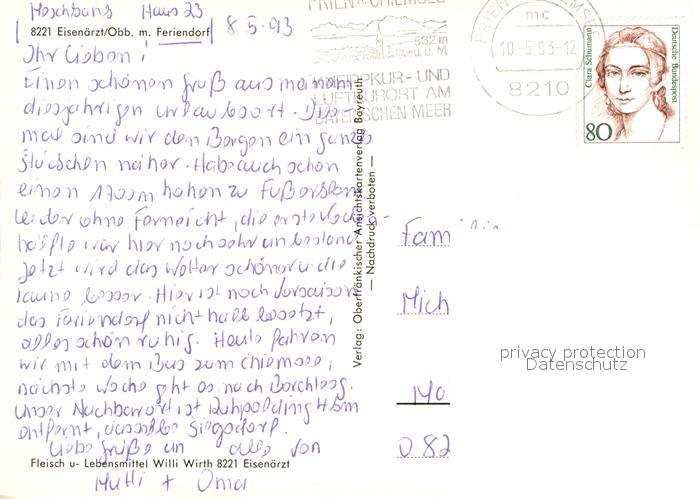 Haus 23
8221 Eisenärzt/Obb. m. Feriendorf
8.5.93
Ihr Lieben!
Einen schönen Gruß aus meinem
diesjährigen Urlaubsort. Dies
mal sind wir den Bergen ein ganzes
Stückchen näher. Habe auch schon
einen 1700m hohen zu Fuß erstiegen
leider ohne Fernsicht, die erste Wochen-
hälfte war hier noch sehr unbeständ
Jetzt wird das Wetter schöner u. die
Laune besser. Hier ist noch Vorsaison
das Feriendorf nicht halb besetzt,
alles schön ruhig. Heute fahren
wir mit dem Bus zum Chiemsee,
nächste Woche geht es nach Berchtesg.
Unser Nachbarort ist Ruhpolding 4 km
entfernt, dasselbe Siegsdorf.
Liebe Grüße an alle von
Mutti + Oma
Fleisch u- Lebensmittel Willi Wirth 8221 Eisenärzt
Verlag: Oberfränkischer Ansichtskartenverlag Bayreuth
— Nachdruck verboten —
PRIEN a. CHIEMSEE
532 m
ü. d. M.
KNEIPPKUR- UND
LUFTKURORT AM
BAYERISCHEN MEER
PRIEN A CHIEMSEE
mc
10.-5.93-12
8210
Clara Schumann
Deutsche Bundespost
80
Fam
Mich
Mo
O 82
privacy protection
Datenschutz